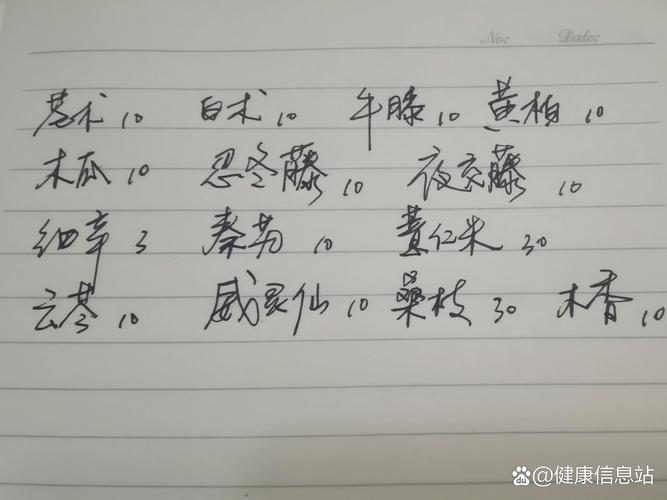 No: Date:
苍术 10 白术 10 牛膝 10 黄柏 10
木瓜 10 忍冬藤 10 夜交藤 10
细辛 3 秦艽 10 薏仁米 30
云苓 10 威灵仙 10 桑枝 30 木香 10
@健康信息站